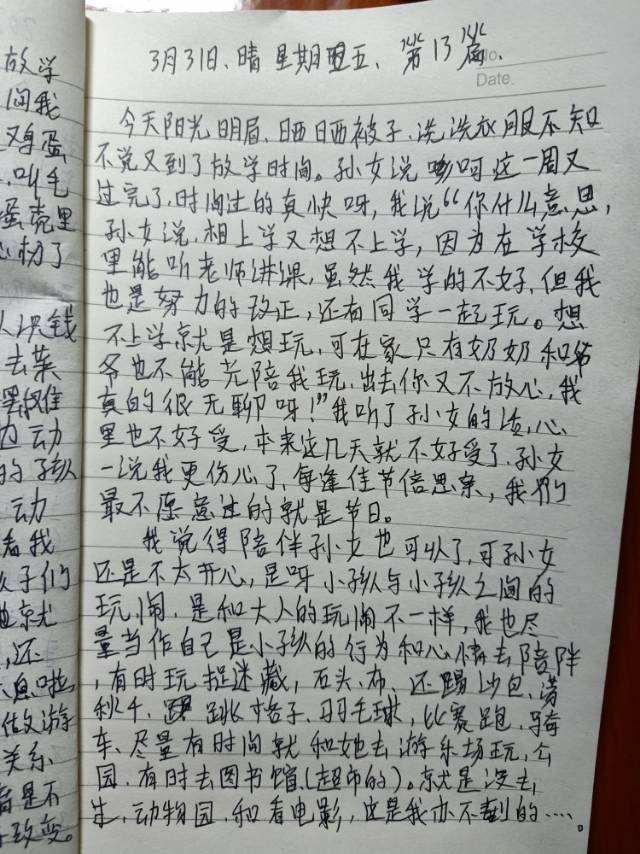 放学
间我
又鸡蛋
叫毛
蛋壳里
心切了
决钱
去菜
动
的孩
动
看我
子们
就
还
息啦
做文游
关系
看是不
改变。
3月31日、晴 星期五、第13篇.
No.
Date.
今天阳光明眉、晒晒被子、洗洗衣服不知
不说又到了放学时间。孙女说嗨呵这一周又
过完了,时间过的真快呀,我说“你什么意思,
孙女说,相上学又想不上学,因为在学校
里能听老师讲课,虽然我学的不好,但我
也是努力的改正,还有同学一起玩。想
不上学就是想玩,可在家只有奶奶和爷
爷也不能光陪我玩,出去你又不放心,我
真的很无聊呀!”我听了孙女的话,心
里也不好受,本来这几天就不好受了,孙女
一说我更伤心了,每逢佳节信思亲,我们
最不愿意过的就是节日。
我说得陪伴孙女也可以了,可孙女
还是不太开心,是呀小孩与小孩之间的
玩闹,是和大人的玩闹不一样,我也尽
量当作自己是小孩的行为和心情去陪陪
,有时玩捉迷藏,石头、布、还踢沙包、荡
秋千、跳格子、羽毛球,比赛跑、骑
车、尽量有时间就和她去游乐场玩,公
园,有时去图书馆(超市的)。就是没去
生,动物园,和看电影,这是我办不到的….。